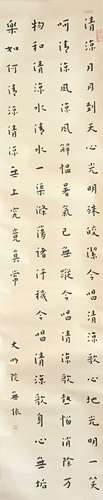 清涼月月到天心光明殊皎潔今唱清涼歌心地光明一笑
呵清涼風涼風解慍暑氣已無蹤今唱清涼歌熱惱消除万
物和清涼水清水一渠滌蕩諸汙穢今唱清涼歌身心無垢
樂如何清涼清涼無上究竟真常
大明院無依